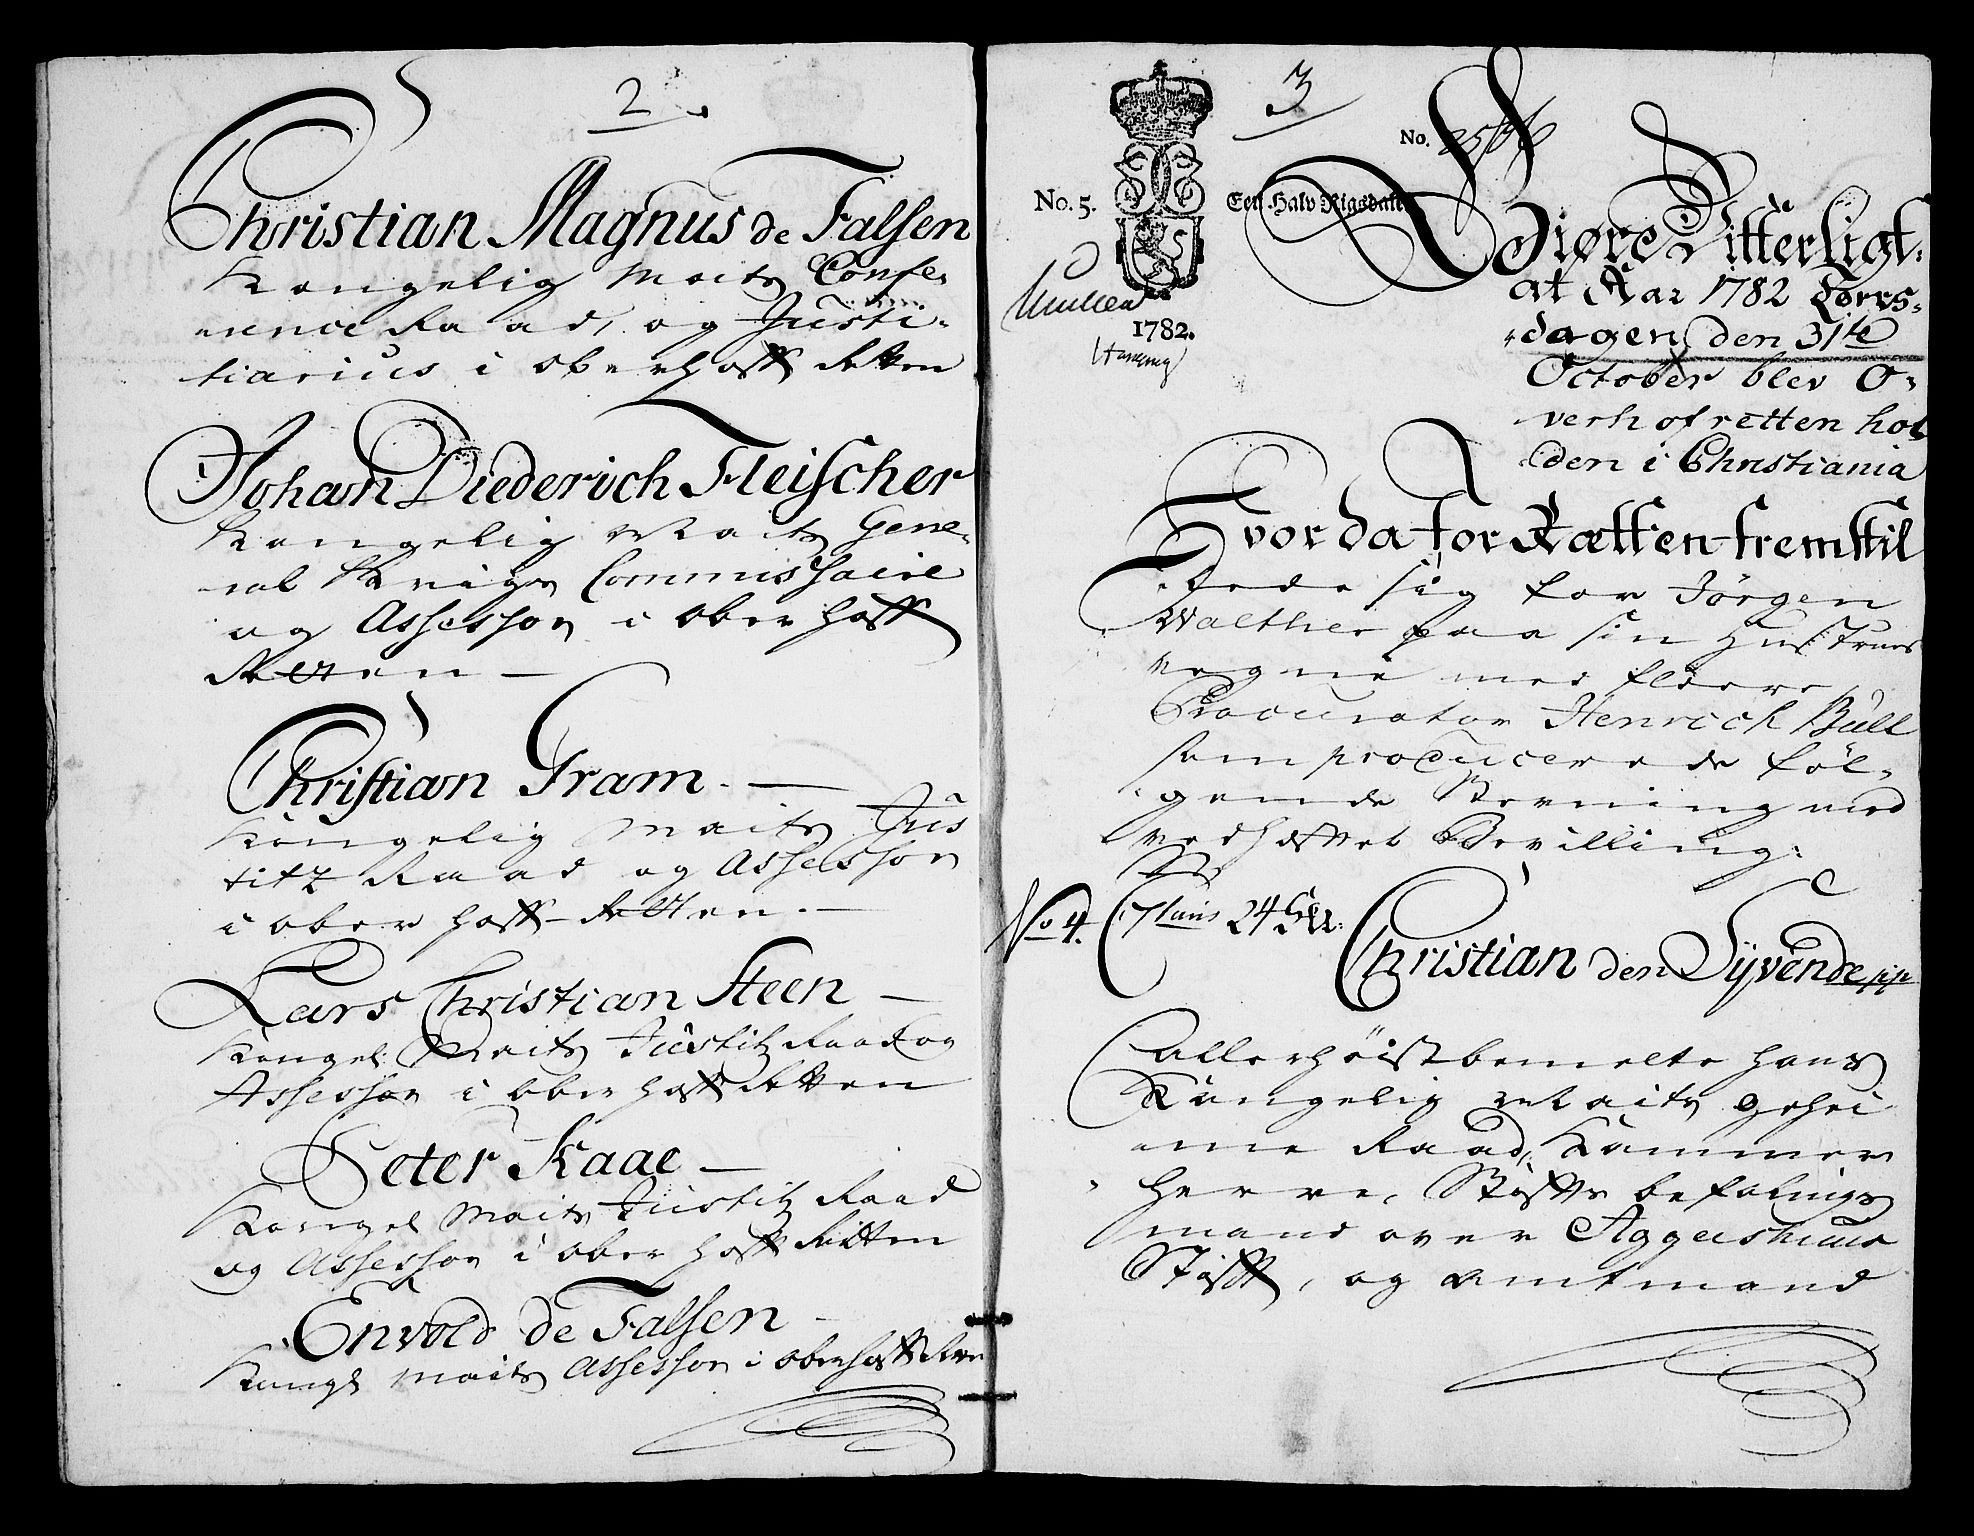 2
Christian Magnus de Falsen
Kongelig Maits Confe-
rence Raad, og Justi-
tiarius i oberhoff Retten
Johan Diederich Fleischer
Kongelig Maits Gene-
ral Krigs Commissaire
og Assessor i ober hoff
Retten
Christian Gram.
Kongelig Maits Jus
titz Raad og Assessor
i ober hoff-Retten.
Lars Christian Steen
Kongel: Maits Justitz Raad og
Assessor i ober hoff Retten
Peter Kaae
Kongel Maits Justitz Raad
og Assessor i ober hoff Retten
Envold de Falsen
Kongl Maits Assessor i oberhoff Retten
3
No.
No. 5.
Een Halv Rigsdaler
1782.
Giøre Vitterligt:
at Aar 1782 Torrs-
dagen den 31te
October blev O-
verhofretten hol
den i Christiania
Hvor da for Rætten fremstil
lede sig for Jörgen
Walther paa sin Hustrues
vegne med fleere
Procurator Henrich Bull
som producerede föl-
gende Stevning med
vedheftet Bevilling:
No 4. 24 S
Christian den Syvende pp
Allerhöistbemelte hans
Kongelig Maits gehei
me Raad, Kammer
Herre, Stifts befalings
mand over Aggershuus
Stift, og amtmand